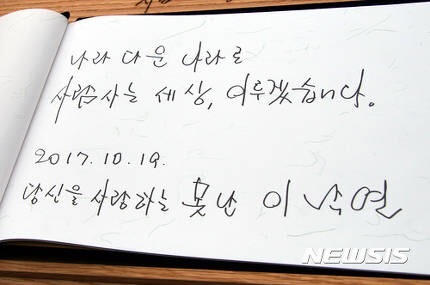 나라 다운 나라로
사람사는 세상, 이루겠습니다.
2017.10.19.
당신을 사랑하는 못난 이낙연
NEWSIS